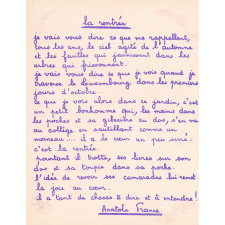 la rentrée
je vais vous dire ce que me rappellent,
tous les ans, le ciel agité de l'automne
et les feuilles qui jaunissent dans les
arbres qui frissonnent.
je vais vous dire ce que je vois quand je
traverse le Luxembourg dans les premiers
jours d'octobre.
ce que je vois alors dans ce jardin, c'est
un petit bonhomme qui, les mains dans
les poches et sa gibecière au dos, s'en va
au collège en sautillant comme un
moineau... il a le cœur un peu serré:
c'est la rentrée
pourtant il trotte, ses livres sur son
dos et sa toupie dans sa poche.
l'idée de revoir ses camarades lui remet
la joie au cœur.
il a tant de choses à dire et à entendre!
Anatole France.